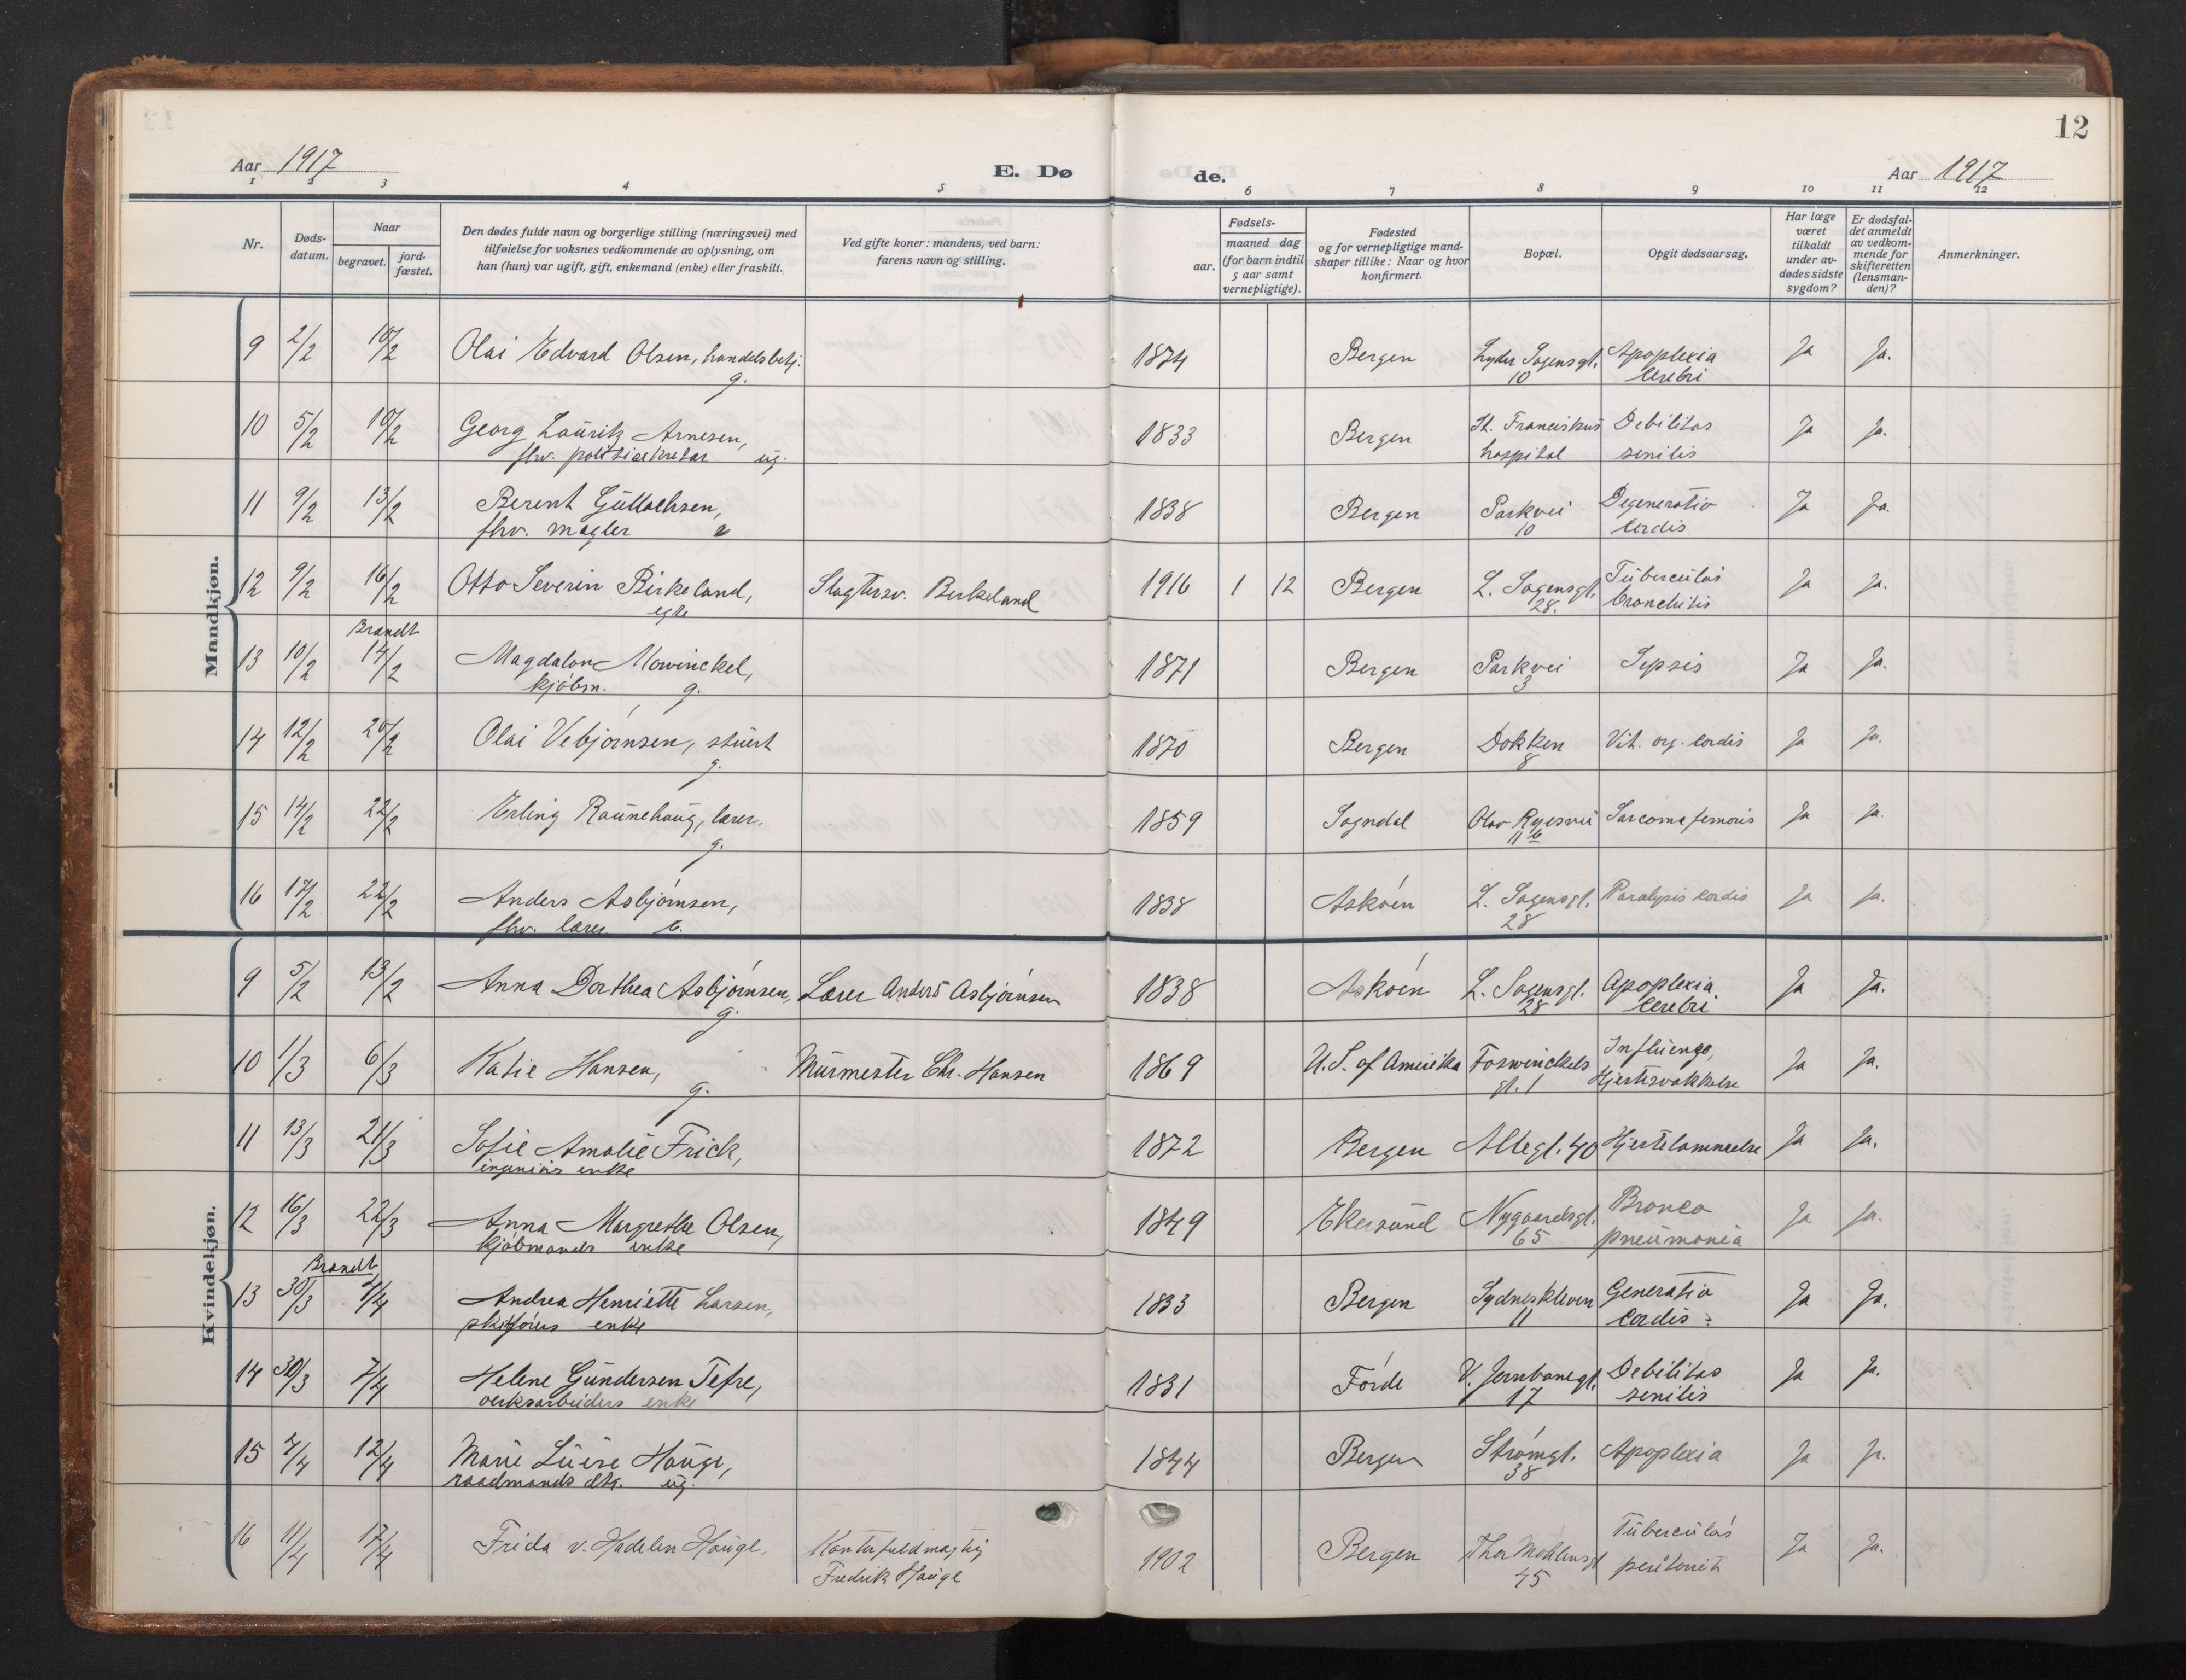 12
Aar 1917
E. Dø
de.
Aar 1917
1 2 3 4 5 6 7 8 9 10 11 12
Nr.
Døds-
datum.
Naar
begravet.
jord-
fæstet.
Den dødes fulde navn og borgerlige stilling (næringsvei) med
tilføielse for voksnes vedkommende av oplysning, om
han (hun) var ugift, gift, enkemand (enke) eller fraskilt.
Ved gifte koner: mandens, ved barn:
farens navn og stilling.
Fødsels-
aar.
maaned dag
(for barn indtil
5 aar samt
vernepligtige).
Fødested
og for vernepligtige mand-
skaper tillike: Naar og hvor
konfirmert.
Bopæl.
Opgit dødsaarsag.
Har læge
været
tilkaldt
under av-
dødes sidste
sygdom?
Er dødsfal-
det anmeldt
av vedkom-
mende for
skifteretten
(lensman-
den)?
Anmerkninger.
Mandkjøn.
9 2/2 10/2 Olai Edvard Olsen, handelsbetj. 1874 Bergen Lyder Sagensgt. Apoplexia Ja Ja.
g. 10 Cerebri
10 5/2 10/2 Georg Lauritz Arnesen, 1833 Bergen St. Franciskus Debilitas Ja Ja.
fhv. politisekretær ug. hospital senilis
11 9/2 13/2 Berent Gullachsen, 1838 Bergen Parkvei Degeneratio Ja Ja.
fhv. mægler 10 Cordis
12 9/2 16/2 Otto Severin Birkeland, Slagtersv. Birkeland 1916 1 12 Bergen L. Sagensgt. Tuberculøs Ja Ja.
egte 28. bronchitis
Brandt
13 10/2 14/2 Magdalon Mowinckel, 1871 Bergen Parkvei Sepsis Ja Ja.
kjøbm. g. 3
14 12/2 20/2 Olai Vebjørnsen, stuert 1870 Bergen Dokken Vit. org. cordis Ja Ja.
g. 8
15 14/2 22/2 Erling Raunehaug, lærer. 1859 Sogndal Olav Ryesvei Sarcoma femoris Ja Ja.
g. 11 b
16 17/2 22/2 Anders Asbjørnsen, 1838 Askøen L. Sagensgt. Paralysis cordis Ja Ja.
fhv. lærer 28
Kvindekjøn.
9 5/2 13/2 Anna Dorthea Asbjørnsen, Lærer Anders Asbjørnsen 1838 Askøen L. Sagensgt. Apoplexia Ja Ja.
g. 28 Cerebri
10 1/3 6/3 Katie Hansen, Murmester Chr. Hansen 1869 U.S. of Amerika Foswinckels Influenza, Ja Ja.
g. gt. 1 Hjertesvækkelse
11 13/3 21/3 Sofie Amalie Frick, 1872 Bergen Allegt. 40 Hjertelammelse Ja Ja.
ingeniørs enke
12 16/3 22/3 Anna Margrethe Olsen, 1849 Ekersund Nygaardsgt. Bronco Ja Ja.
kjøbmands enke 65 pneumonia
Brandt
13 30/3 4/4 Andrea Henriette Larsen, 1833 Bergen Sydneskleven Generatio Ja Ja.
skipførers enke 11 Cordis
14 30/3 7/4 Helene Gundersen Tefre, 1831 Førde V. Jernbanegt. Debilitas Ja Ja.
verksarbeiders enke 17 senilis
15 7/4 12/4 Marie Luise Hauge, 1844 Bergen Strømgt. Apoplexia Ja Ja.
raadmands dtr. ug. 38
16 11/4 17/4 Frida v. Hadelen Hauge, Kontorfuldmægtig 1902 Bergen Thor Møhlensgt Tuberculøs Ja Ja.
Fredrik Hauge 45 peritonit